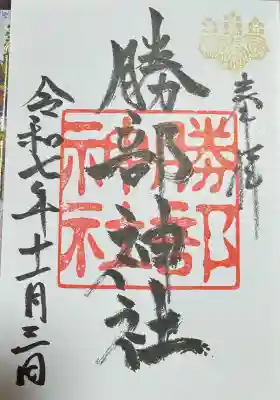 奉拝
勝部神社
勝部
神社
令和七年十一月三日